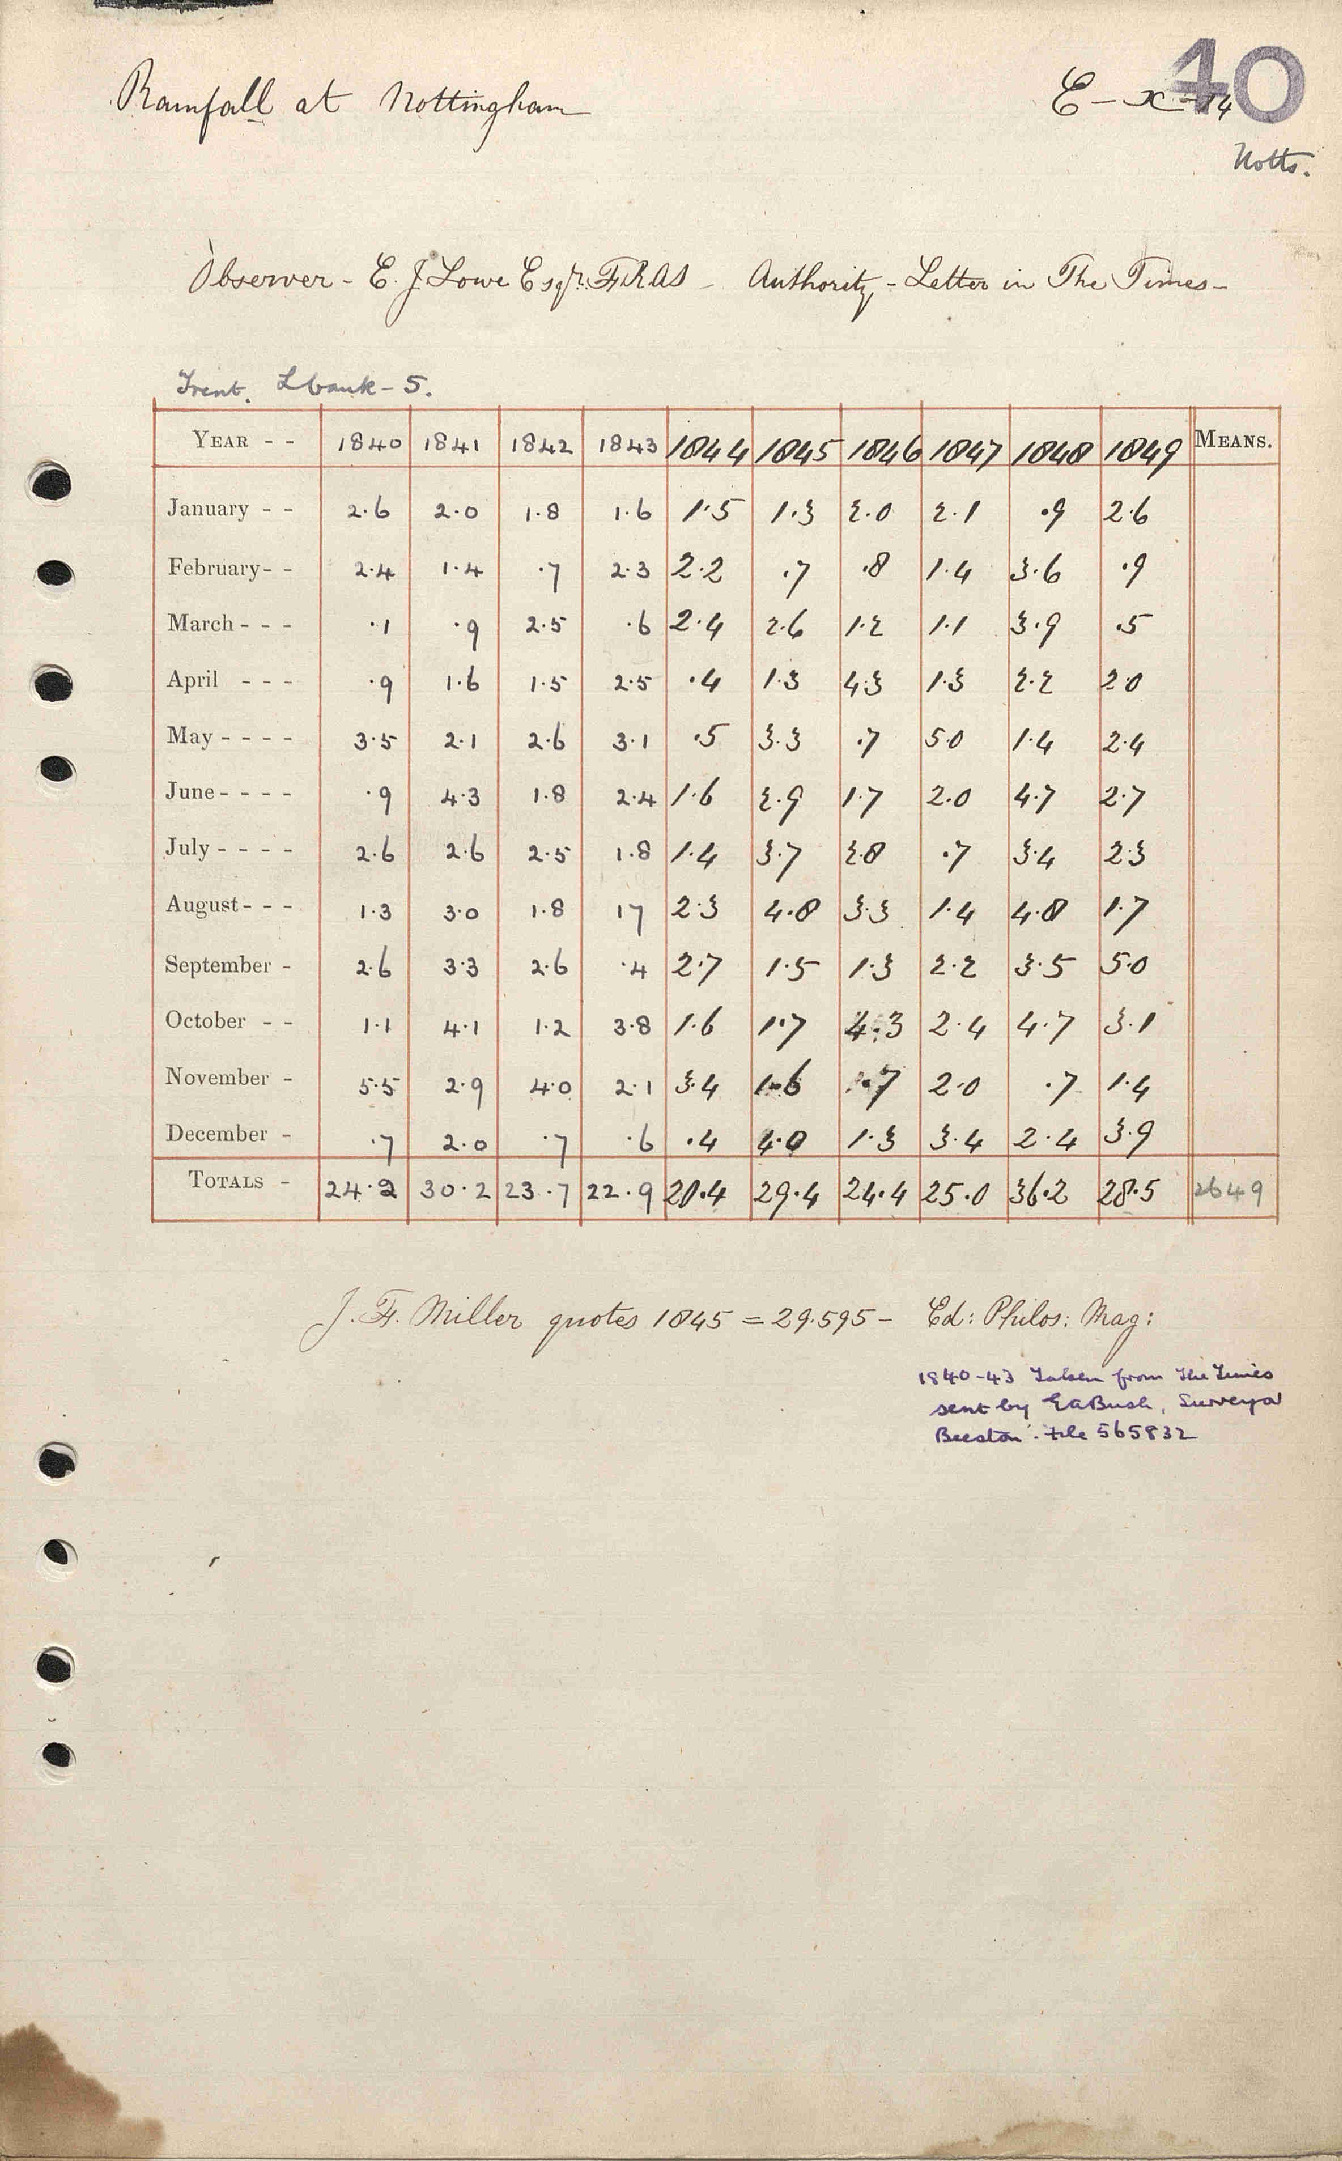 40
Rainfall at Nottingham E - X - 14
Notts.
Observer - E. J. Lowe Esqr. FRAS - Authority - Letter in The Times -
Trent. L bank - 5.
YEAR - - 1840 1841 1842 1843 1844 1845 1846 1847 1848 1849 MEANS.
January - - 2.6 2.0 1.8 1.6 1.5 1.3 2.0 2.1 .9 2.6
February - - 2.4 1.4 .7 2.3 2.2 .7 .8 1.4 3.6 .9
March - - - .1 .9 2.5 .6 2.4 2.6 1.2 1.1 3.9 .5
April - - - .9 1.6 1.5 2.5 .4 1.3 4.3 1.3 2.2 2.0
May - - - - 3.5 2.1 2.6 3.1 .5 3.3 .7 5.0 1.4 2.4
June - - - - .9 4.3 1.8 2.4 1.6 2.9 1.7 2.0 4.7 2.7
July - - - - 2.6 2.6 2.5 1.8 1.4 3.7 2.8 .7 3.4 2.3
August - - - 1.3 3.0 1.8 17 2.3 4.8 3.3 1.4 4.8 1.7
September - 2.6 3.3 2.6 .4 2.7 1.5 1.3 2.2 3.5 5.0
October - - 1.1 4.1 1.2 3.8 1.6 1.7 4.3 2.4 4.7 3.1
November - 5.5 2.9 4.0 2.1 3.4 1.6 .7 2.0 .7 1.4
December - .7 2.0 .7 .6 .4 4.0 1.3 3.4 2.4 3.9
TOTALS - 24.2 30.2 23.7 22.9 20.4 29.4 24.4 25.0 36.2 28.5 2649
J. F. Miller quotes 1845 = 29.595 - Ed: Philos: Mag:
1840-43 Taken from The Times
sent by E A Bush, Surveyor
Beeston. File 565832